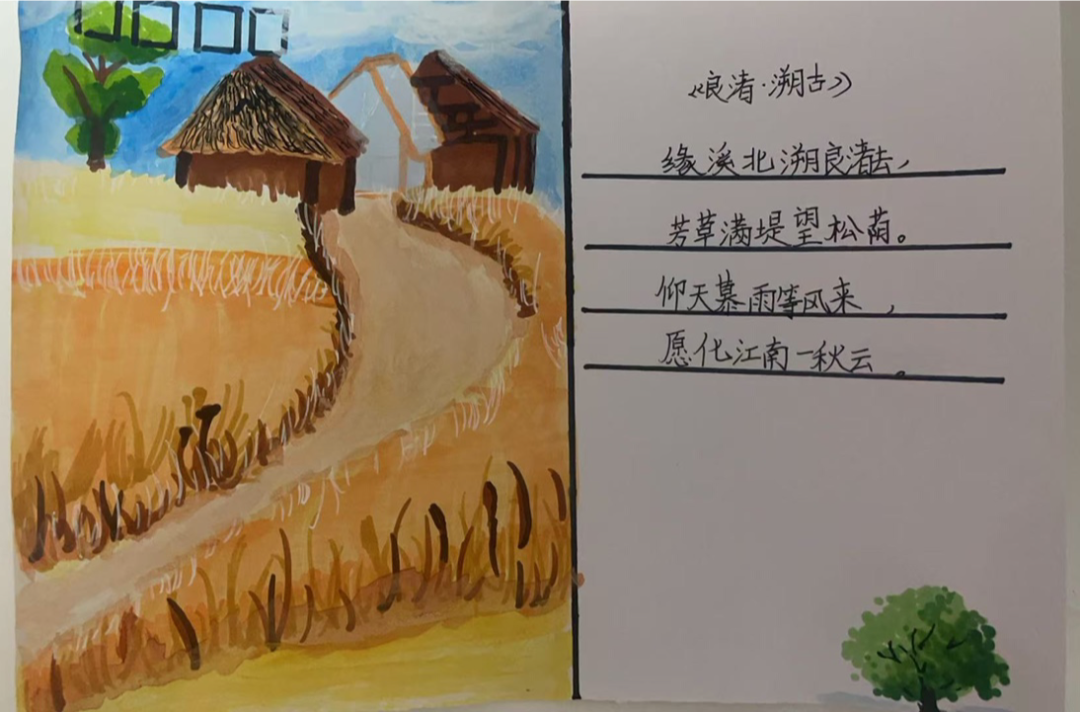 《良渚·溯古》
缘溪北溯良渚去，
芳草满堤望松荫。
仰天慕雨等风来，
愿化江南一秋云。